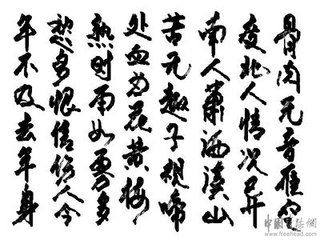 骨肉无音雁
北人情况
南人萧洒溪山
苦无趣子规啼
处血为花黄梅
熟时雨如雾多
愁多恨信伤人今
年不及去年身
www.freehead.com